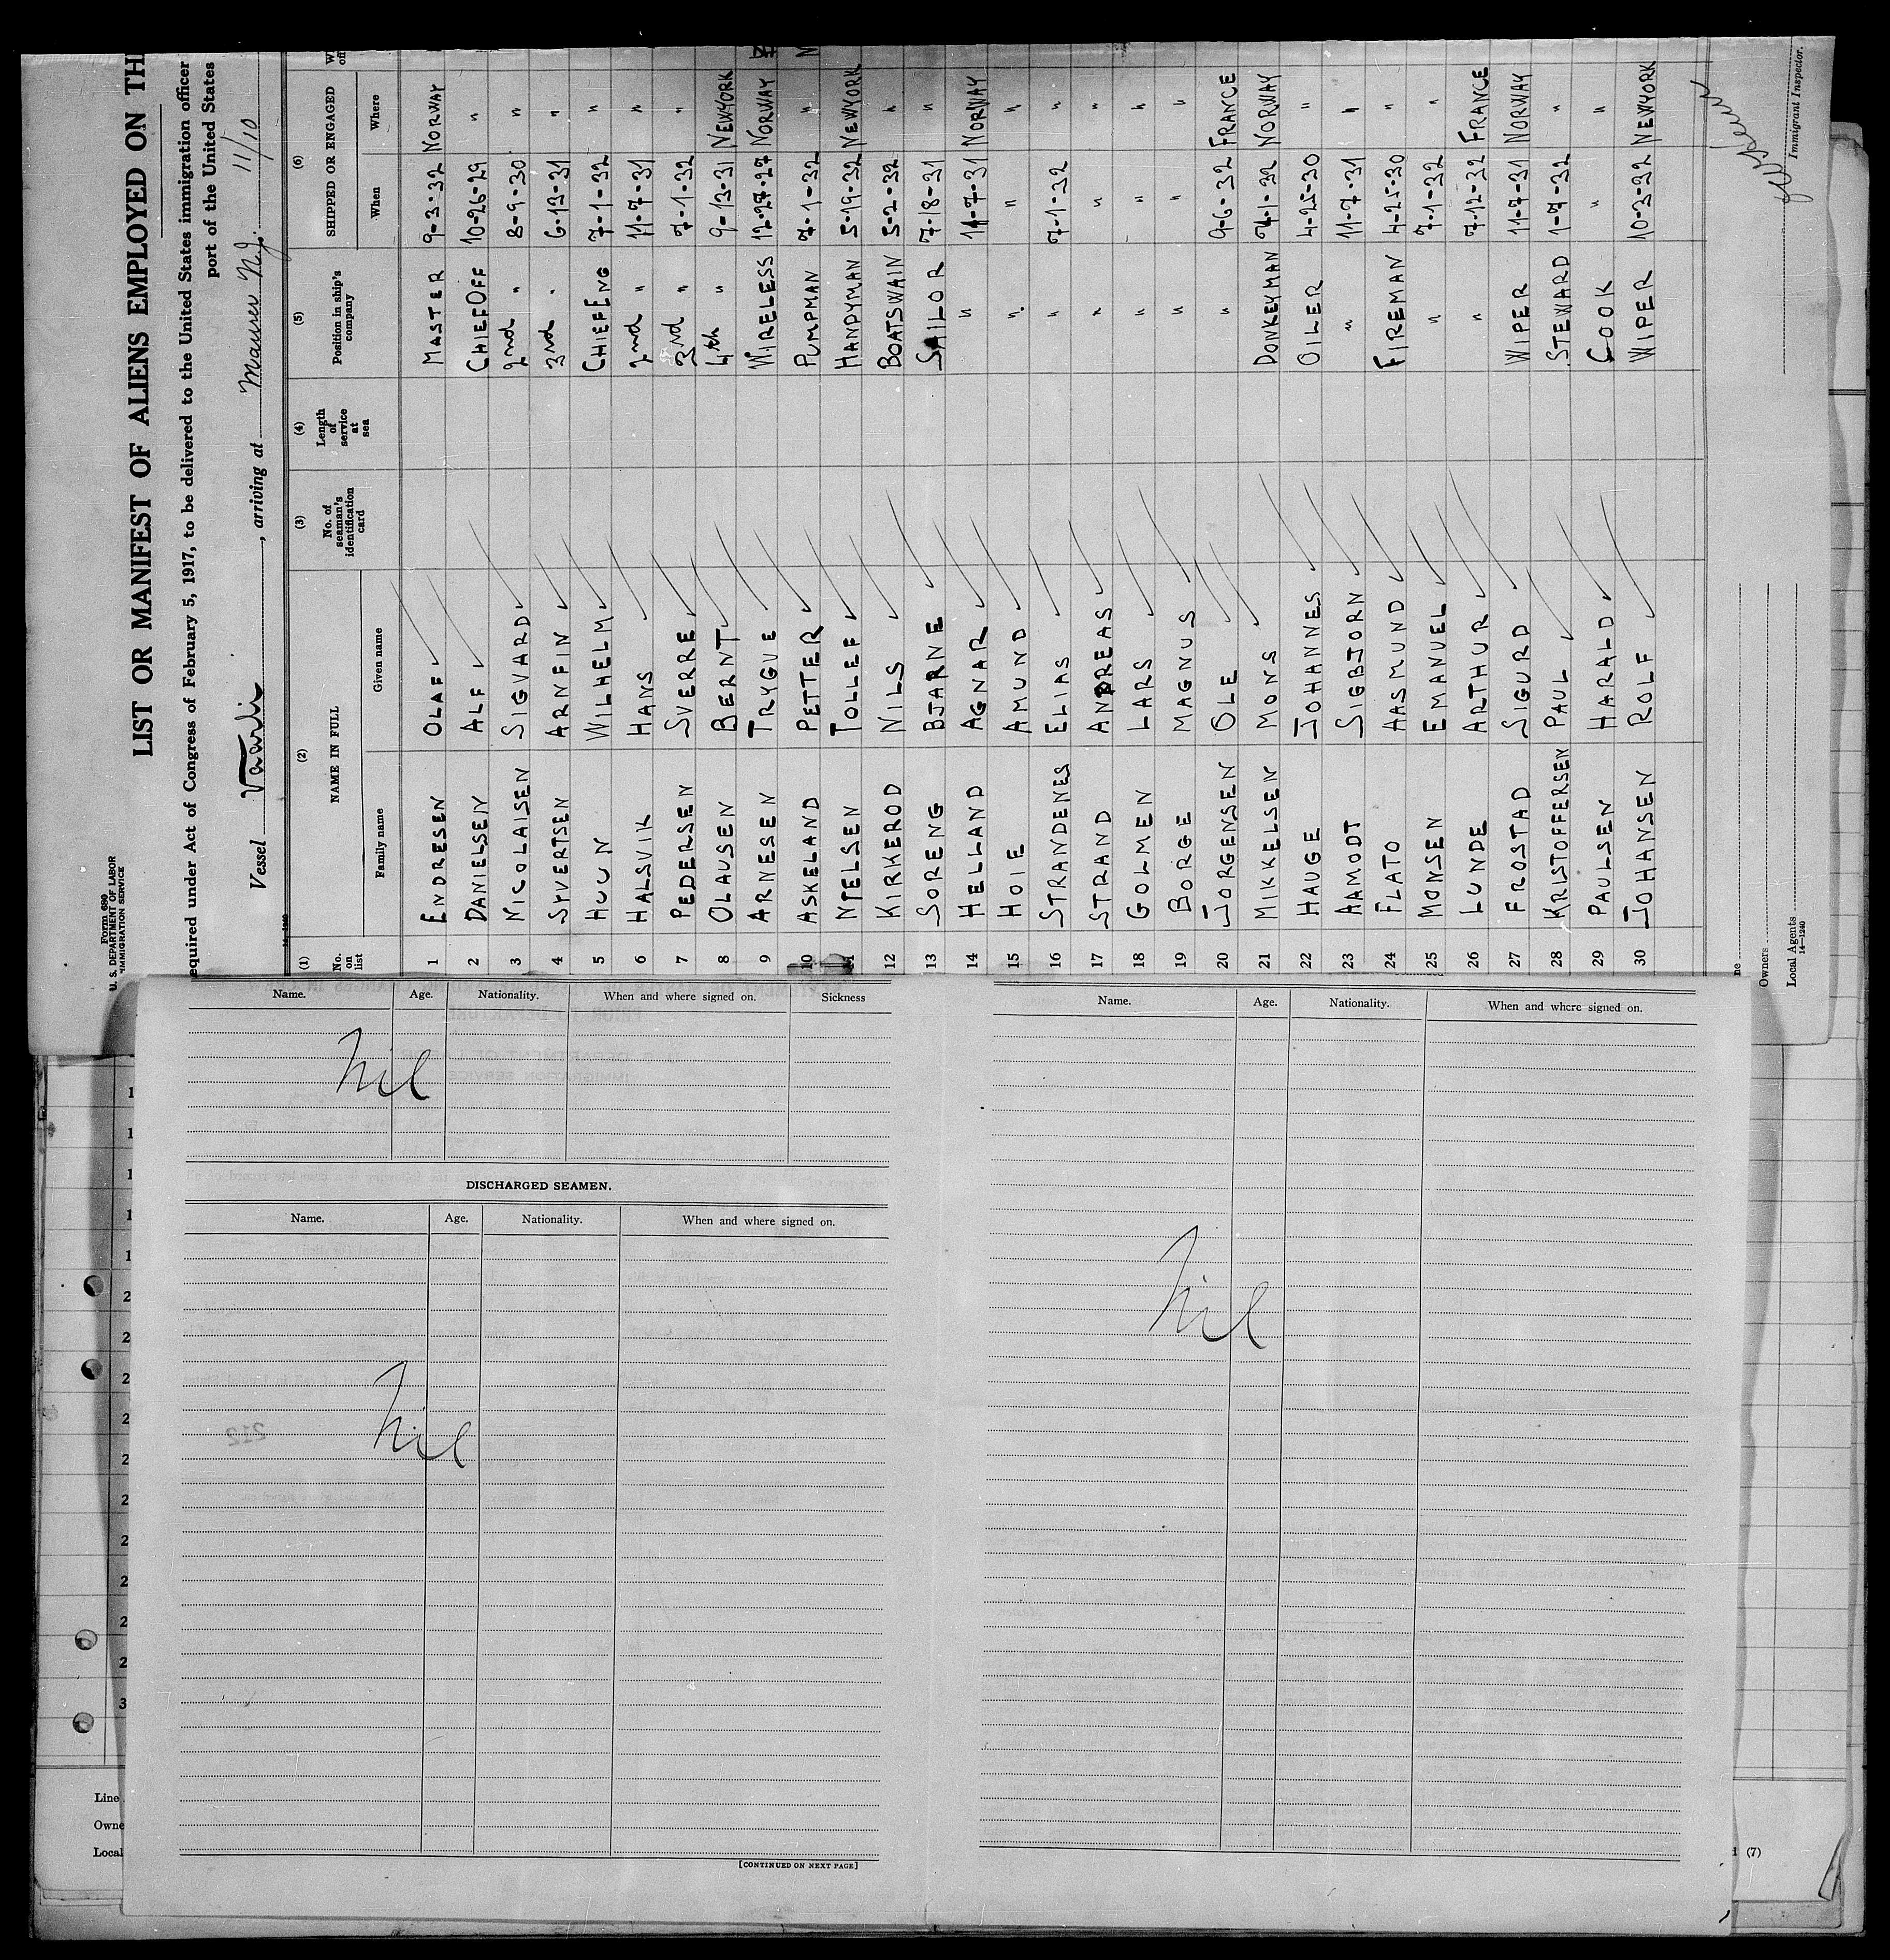 Form 680
U. S. DEPARTMENT OF LABOR
IMMIGRATION SERVICE
LIST OR MANIFEST OF ALIENS EMPLOYED ON TH
equired under Act of Congress of February 5, 1917, to be delivered to the United States immigration officer
port of the United States
Vessel Vardi, arriving at Maurer N.J. 11/10
14—1240
(1) (2) (3) (4) (5) (6)
No. on list NAME IN FULL No. of seaman's identification card Length of service at sea Position in ship's company SHIPPED OR ENGAGED
Family name Given name When Where
1 ENDRESEN OLAF MASTER 9-3-32 NORWAY
2 DANIELSEN ALF CHIEF OFF 10-26-29 "
3 NICOLAISEN SIGVARD 2nd " 8-9-30 "
4 SIVERTSEN ARNFIN 3rd " 6-13-31 "
5 HUUN WILHELM CHIEF ENG 7-1-32 "
6 HALSVIK HANS 2nd " 11-7-31 "
7 PEDERSEN SVERRE 3rd " 7-1-32 "
8 OLAUSEN BERNT 4th " 9-13-31 NEWYORK
9 ARNESEN TRYGVE WIRELESS 12-27-27 NORWAY
10 ASKELAND PETTER PUMPMAN 7-1-32 "
11 NIELSEN TOLLEF HANDYMAN 5-19-32 NEWYORK
12 KIRKEROD NILS BOATSWAIN 5-2-32 "
13 SORENG BJARNE SAILOR 7-18-31 "
14 HELLAND AGNAR " 11-7-31 NORWAY
15 HOIE AMUND " " "
16 STRANDENES ELIAS " 7-1-32 "
17 STRAND ANDREAS " " "
18 GOLMEN LARS " " "
19 BORGE MAGNUS " " "
20 JORGENSEN OLE " 9-6-32 FRANCE
21 MIKKELSEN MONS DONKEYMAN 7-1-32 NORWAY
22 HAUGE JOHANNES OILER 4-25-30 "
23 AAMODT SIGBJORN " 11-7-31 "
24 FLATO AASMUND FIREMAN 4-25-30 "
25 MONSEN EMANUEL " 7-1-32 "
26 LUNDE ARTHUR " 7-12-32 FRANCE
27 FROSTAD SIGURD WIPER 11-7-31 NORWAY
28 KRISTOFFERSEN PAUL STEWARD 1-7-32 "
29 PAULSEN HARALD COOK " "
30 JOHANSEN ROLF WIPER 10-3-32 NEWYORK
Immigrant Inspector.
ne
Owners
Local Agents
14—1240
Name. Age. Nationality. When and where signed on. Sickness
Nil
DISCHARGED SEAMEN.
Name. Age. Nationality. When and where signed on.
Nil
[CONTINUED ON NEXT PAGE]
Name. Age. Nationality. When and where signed on.
Nil
Line
Owne
Local
(7)